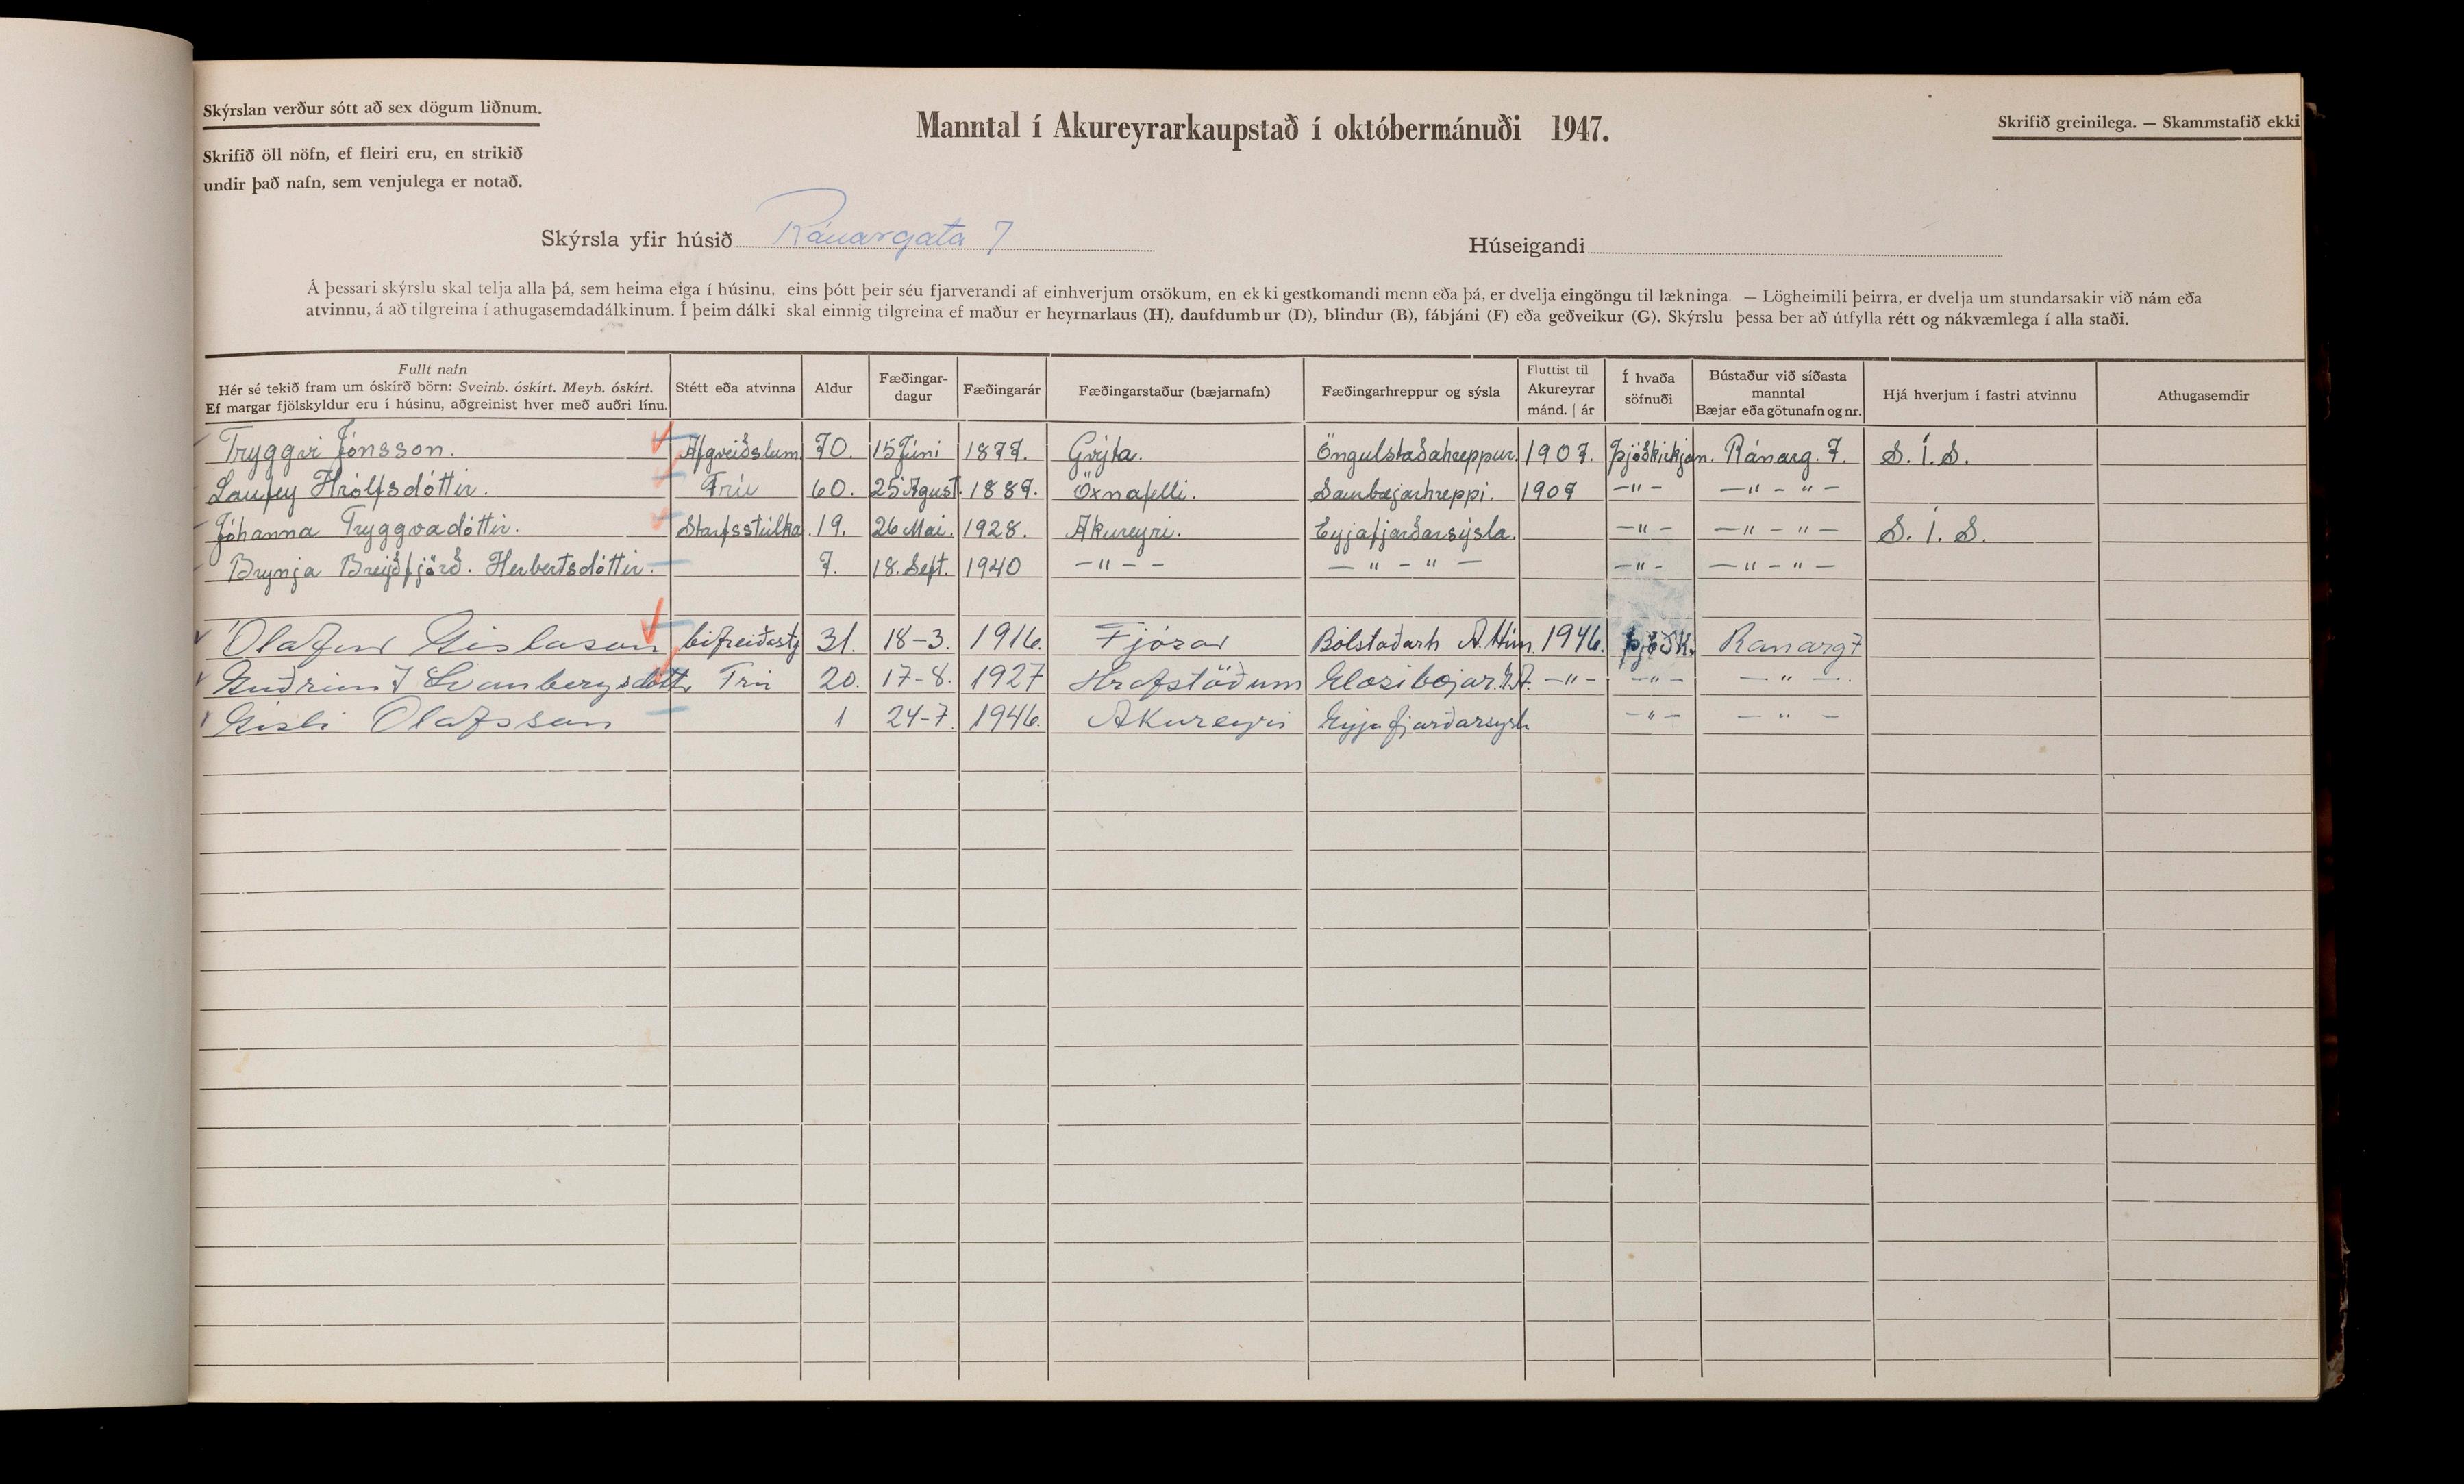 Skýrslan verður sótt að sex dögum liðnum.
Skrifið öll nöfn, ef fleiri eru, en strikið
undir það nafn, sem venjulega er notað.
Manntal í Akureyrarkaupstað í októbermánuði 1947.
Skrifið greinilega. — Skammstafið ekki
Skýrsla yfir húsið Ránargata 7
Húseigandi
Á þessari skýrslu skal telja alla þá, sem heima eiga í húsinu, eins þótt þeir séu fjarverandi af einhverjum orsökum, en ekki gestkomandi menn eða þá, er dvelja eingöngu til lækninga. — Lögheimili þeirra, er dvelja um stundarsakir við nám eða
atvinnu, á að tilgreina í athugasemdadálkinum. Í þeim dálki skal einnig tilgreina ef maður er heyrnarlaus (H), daufdumbur (D), blindur (B), fábjáni (F) eða geðveikur (G). Skýrslu þessa ber að útfylla rétt og nákvæmlega í alla staði.
Fullt nafn
Hér sé tekið fram um óskírð börn: Sveinb. óskírt. Meyb. óskírt.
Ef margar fjölskyldur eru í húsinu, aðgreinist hver með auðri línu.
Stétt eða atvinna
Aldur
Fæðingar-
dagur
Fæðingarár
Fæðingarstaður (bæjarnafn)
Fæðingarhreppur og sýsla
Fluttist til
Akureyrar
mánd. | ár
Í hvaða
söfnuði
Bústaður við síðasta
manntal
Bæjar eða götunafn og nr.
Hjá hverjum í fastri atvinnu
Athugasemdir
Tryggvi Jónsson. Afgreiðslum. 70. 15 Júní 1877. Grýta. Öngulstaðahreppur. 1907. Þjóðkirkjan. Ránarg. 7. S.Í.S.
Laufey Hrólfsdóttir. Frú 60. 25 Ágúst. 1887. Öxnafelli. Saurbæjarhreppi. 1907 —"— —"—"—
Jóhanna Tryggvadóttir. Starfsstúlka. 19. 26 Mai. 1928. Akureyri. Eyjafjarðarsýsla. —"— —"—"— S.Í.S.
Brynja Breiðfjörð. Herbertsdóttir. 7. 18. Sept. 1940 —"— — —"—"— —"— —"—"—
Olafur Gislason bifreiðastj 31. 18-3. 1916. Fjósar Bólstaðarh A. Hún. 1946. ÞjóðK. Ranarg 7
Guðrún J Svanbergsdóttir Frú 20. 17-8. 1927 Hrafstöðum —"— —"— —"—
Gisli Olafsson 1 24-7. 1946. Akureyri Eyjafjarðarsysla —"— —"—